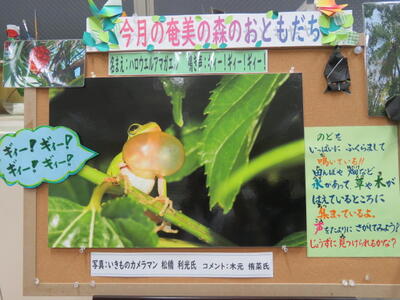 今月の奄美の森のおともだち
名まえ:ハロウエルアマガエル 鳴き声:ギィー!ギィー!ギィー!
ギィー! ギィー!
ギィー! ギィー!
のどを
いっぱいに ふくらまして
鳴いている!!
田んぼや 畑など
水があって 草や木が
はえているところに
集まっているよ。
声をたよりに さがしてみよう?
じょうずに 見つけられるかな?
写真:いきものカメラマン 松橋 利光氏 コメント:木元 侑菜氏